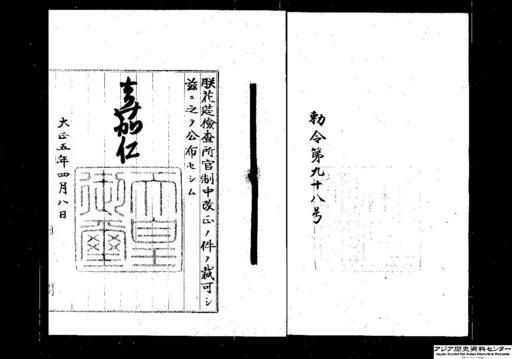 勅令第九十八号
朕花莚検査所官制中改正ノ件ヲ裁可シ
茲ニ之ヲ公布セシム
嘉仁
天皇
御璽
大正五年四月八日
アジア歴史資料センター
Japan Center for Asian Historical Records